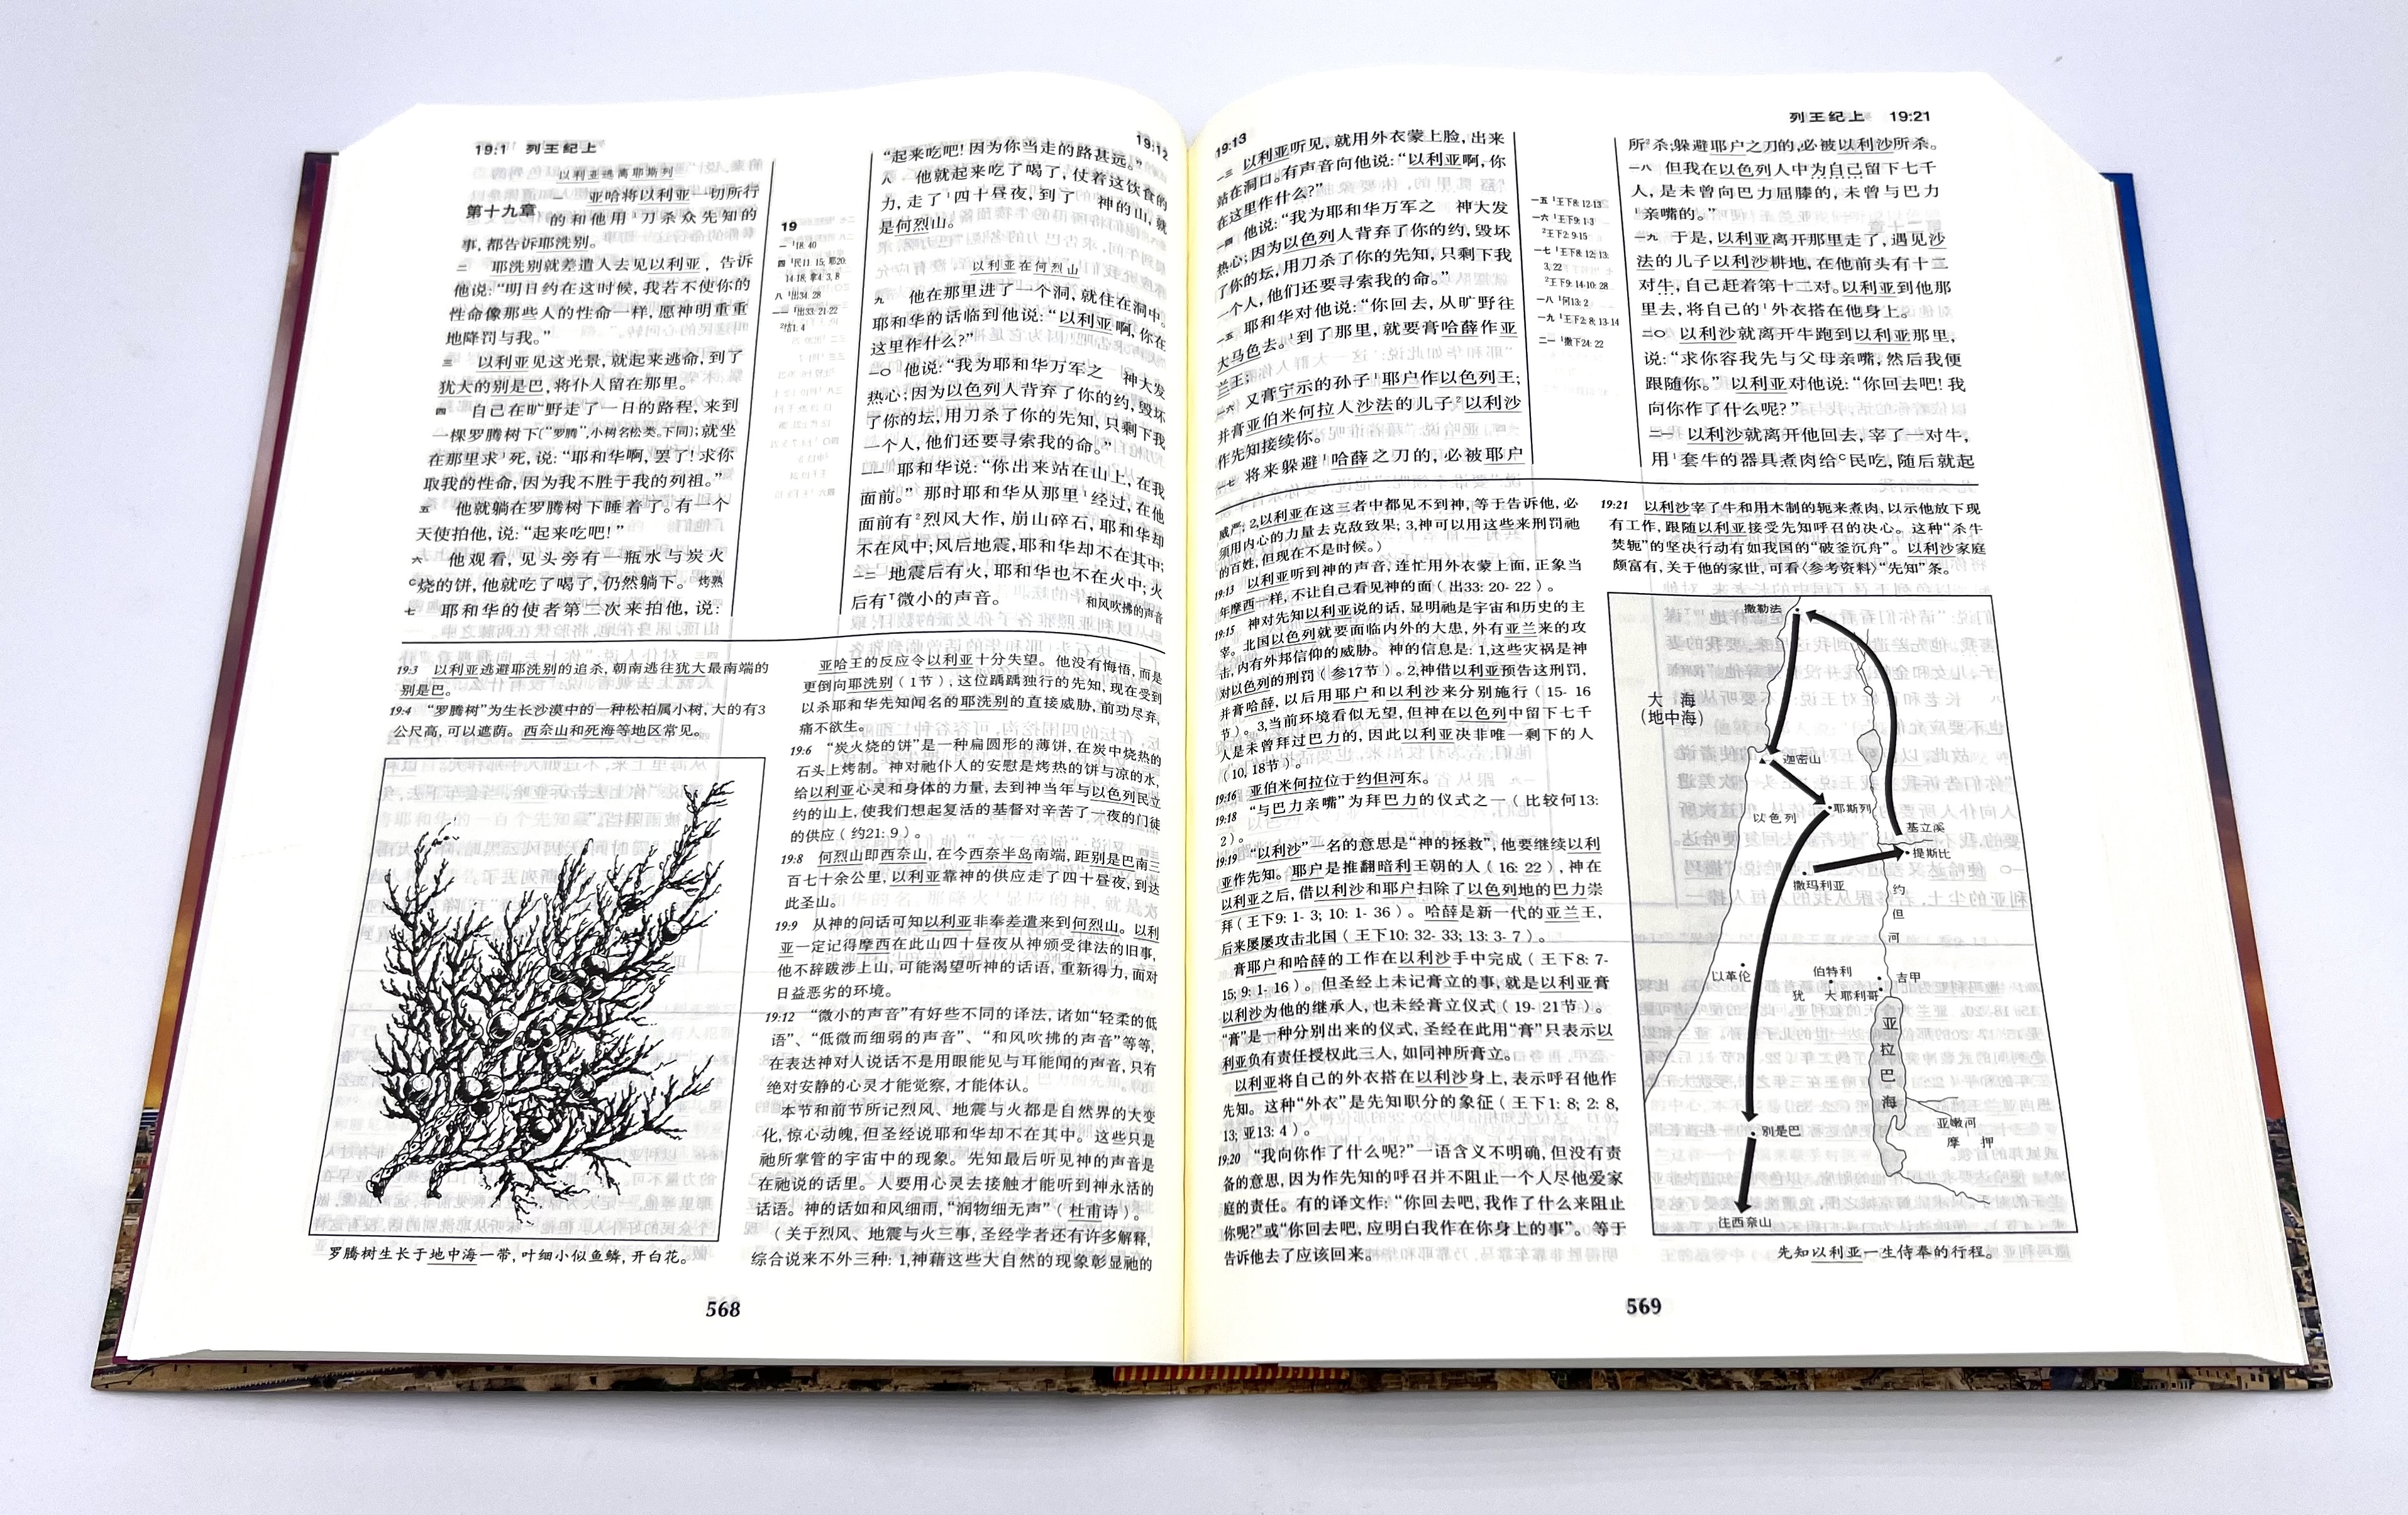 19:1 列王纪上
以利亚逃离耶斯列
第十九章
一 亚哈将以利亚一切所行
的和他用¹刀杀众先知的
事,都告诉耶洗别。
二 耶洗别就差遣人去见以利亚,告诉
他说:“明日约在这时候,我若不使你的
性命像那些人的性命一样,愿神明重重
地降罚与我。”
三 以利亚见这光景,就起来逃命,到了
犹大的别是巴,将仆人留在那里。
四 自己在旷野走了一日的路程,来到
一棵罗腾树下(“罗腾”,小树名松类。下同);就坐
在那里求¹死,说:“耶和华啊,罢了!求你
取我的性命,因为我不胜于我的列祖。”
五 他就躺在罗腾树下睡着了。有一个
天使拍他,说:“起来吃吧!”
六 他观看,见头旁有一瓶水与炭火
ᶜ烧的饼,他就吃了喝了,仍然躺下。 烤熟
七 耶和华的使者第二次来拍他,说:
19
一 ¹18:40
四 ¹民11:15;耶20:
14-18;拿4:3,8
八 ¹出34:28
一一 ¹出33:21-22
²结1:4
19:12
“起来吃吧!因为你当走的路甚远。”
八 他就起来吃了喝了,仗着这饮食的
力,走了¹四十昼夜,到了 神的山,就
是何烈山。
以利亚在何烈山
九 他在那里进了一个洞,就住在洞中。
耶和华的话临到他说:“以利亚啊,你在
这里作什么?”
一〇 他说:“我为耶和华万军之 神大发
热心;因为以色列人背弃了你的约,毁坏
了你的坛,用刀杀了你的先知,只剩下我
一个人,他们还要寻索我的命。”
一一 耶和华说:“你出来站在山上,在我
面前。”那时耶和华从那里¹经过,在他
面前有²烈风大作,崩山碎石,耶和华却
不在风中;风后地震,耶和华却不在其中;
一二 地震后有火,耶和华也不在火中;火
后有ᵀ微小的声音。 和风吹拂的声音
19:3 以利亚逃避耶洗别的追杀,朝南逃往犹大最南端的
别是巴。
19:4 “罗腾树”为生长沙漠中的一种松柏属小树,大的有3
公尺高,可以遮荫。西奈山和死海等地区常见。
罗腾树生长于地中海一带,叶细小似鱼鳞,开白花。
亚哈王的反应令以利亚十分失望。他没有悔悟,而是
更倒向耶洗别(1节),这位踽踽独行的先知,现在受到
以杀耶和华先知闻名的耶洗别的直接威胁,前功尽弃,
痛不欲生。
19:6 “炭火烧的饼”是一种扁圆形的薄饼,在炭中烧热的
石头上烤制。神对祂仆人的安慰是烤热的饼与凉的水,
给以利亚心灵和身体的力量,去到神当年与以色列民立
约的山上,使我们想起复活的基督对辛苦了一夜的门徒
的供应(约21:9)。
19:8 何烈山即西奈山,在今西奈半岛南端,距别是巴南三
百七十余公里,以利亚靠神的供应走了四十昼夜,到达
此圣山。
19:9 从神的问话可知以利亚非奉差遣来到何烈山。以利
亚一定记得摩西在此山四十昼夜从神颁受律法的旧事,
他不辞跋涉上山,可能渴望听神的话语,重新得力,面对
日益恶劣的环境。
19:12 “微小的声音”有好些不同的译法,诸如“轻柔的低
语”、“低微而细弱的声音”、“和风吹拂的声音”等等,
在表达神对人说话不是用眼能见与耳能闻的声音,只有
绝对安静的心灵才能觉察,才能体认。
本节和前节所记烈风、地震与火都是自然界的大变
化,惊心动魄,但圣经说耶和华却不在其中。这些只是
祂所掌管的宇宙中的现象。先知最后听见神的声音是
在祂说的话里。人要用心灵去接触才能听到神永活的
话语。神的话如和风细雨,“润物细无声”(杜甫诗)。
(关于烈风、地震与火三事,圣经学者还有许多解释,
综合说来不外三种:1,神藉这些大自然的现象彰显祂的
568
19:13
一三 以利亚听见,就用外衣蒙上脸,出来
站在洞口。有声音向他说:“以利亚啊,你
在这里作什么?”
一四 他说:“我为耶和华万军之 神大发
热心;因为以色列人背弃了你的约,毁坏
了你的坛,用刀杀了你的先知,只剩下我
一个人,他们还要寻索我的命。”
一五 耶和华对他说:“你回去,从旷野往
大马色去。¹到了那里,就要膏哈薛作亚
兰王;
一六 又膏宁示的孙子¹耶户作以色列王;
并膏亚伯米何拉人沙法的儿子²以利沙
作先知接续你。
一七 将来躲避¹哈薛之刀的,必被耶户
一五 ¹王下8:12-13
一六 ¹王下9:1-3
²王下2:9-15
一七 ¹王下8:12;13:
3,22
²王下9:14-10:28
一八 ¹何13:2
一九 ¹王下2:8;13-14
二一 ¹撒下24:22
列王纪上 19:21
所²杀;躲避耶户之刀的,必被以利沙所杀。
一八 但我在以色列人中为自己留下七千
人,是未曾向巴力屈膝的,未曾与巴力
¹亲嘴的。”
一九 于是,以利亚离开那里走了,遇见沙
法的儿子以利沙耕地,在他前头有十二
对牛,自己赶着第十二对。以利亚到他那
里去,将自己的¹外衣搭在他身上。
二〇 以利沙就离开牛跑到以利亚那里,
说:“求你容我先与父母亲嘴,然后我便
跟随你。”以利亚对他说:“你回去吧!我
向你作了什么呢?”
二一 以利沙就离开他回去,宰了一对牛,
用¹套牛的器具煮肉给ᶜ民吃,随后就起
威严;2,以利亚在这三者中都见不到神,等于告诉他,必
须用内心的力量去克敌致果;3,神可以用这些来刑罚祂
的百姓,但现在不是时候。)
19:13 以利亚听到神的声音,连忙用外衣蒙上面,正象当
年摩西一样,不让自己看见神的面(出33:20-22)。
19:15 神对先知以利亚说的话,显明祂是宇宙和历史的主
宰。北国以色列就要面临内外的大患,外有亚兰来的攻
击,内有外邦信仰的威胁。神的信息是:1,这些灾祸是神
对以色列的刑罚(参17节)。2,神借以利亚预告这刑罚,
并膏哈薛,以后用耶户和以利沙来分别施行(15-16
节)。3,当前环境看似无望,但神在以色列中留下七千
人是未曾拜过巴力的,因此以利亚决非唯一剩下的人
(10,18节)。
19:16 亚伯米何拉位于约但河东。
19:18 “与巴力亲嘴”为拜巴力的仪式之一(比较何13:
2)。
19:19 “以利沙”一名的意思是“神的拯救”,他要继续以利
亚作先知。耶户是推翻暗利王朝的人(16:22),神在
以利亚之后,借以利沙和耶户扫除了以色列地的巴力崇
拜(王下9:1-3;10:1-36)。哈薛是新一代的亚兰王,
后来屡屡攻击北国(王下10:32-33;13:3-7)。
膏耶户和哈薛的工作在以利沙手中完成(王下8:7-
15;9:1-16)。但圣经上未记膏立的事,就是以利亚膏
以利沙为他的继承人,也未经膏立仪式(19-21节)。
“膏”是一种分别出来的仪式,圣经在此用“膏”只表示以
利亚负有责任授权此三人,如同神所膏立。
以利亚将自己的外衣搭在以利沙身上,表示呼召他作
先知。这种“外衣”是先知职分的象征(王下1:8;2:8,
13;亚13:4)。
19:20 “我向你作了什么呢?”一语含义不明确,但没有责
备的意思,因为作先知的呼召并不阻止一个人尽他爱家
庭的责任。有的译文作:“你回去吧,我作了什么来阻止
你呢?”或“你回去吧,应明白我作在你身上的事”。等于
告诉他去了应该回来。
19:21 以利沙宰了牛和用木制的轭来煮肉,以示他放下现
有工作,跟随以利亚接受先知呼召的决心。这种“杀牛
焚轭”的坚决行动有如我国的“破釜沉舟”。以利沙家庭
颇富有,关于他的家世,可看〈参考资料〉“先知”条。
撒勒法
大海
(地中海)
迦密山
耶斯列
以色列
基立溪
提斯比
撒玛利亚
约但河
以革伦
伯特利
吉甲
犹大
耶利哥
亚拉巴海
亚嫩河
摩押
别是巴
往西奈山
先知以利亚一生侍奉的行程。
569